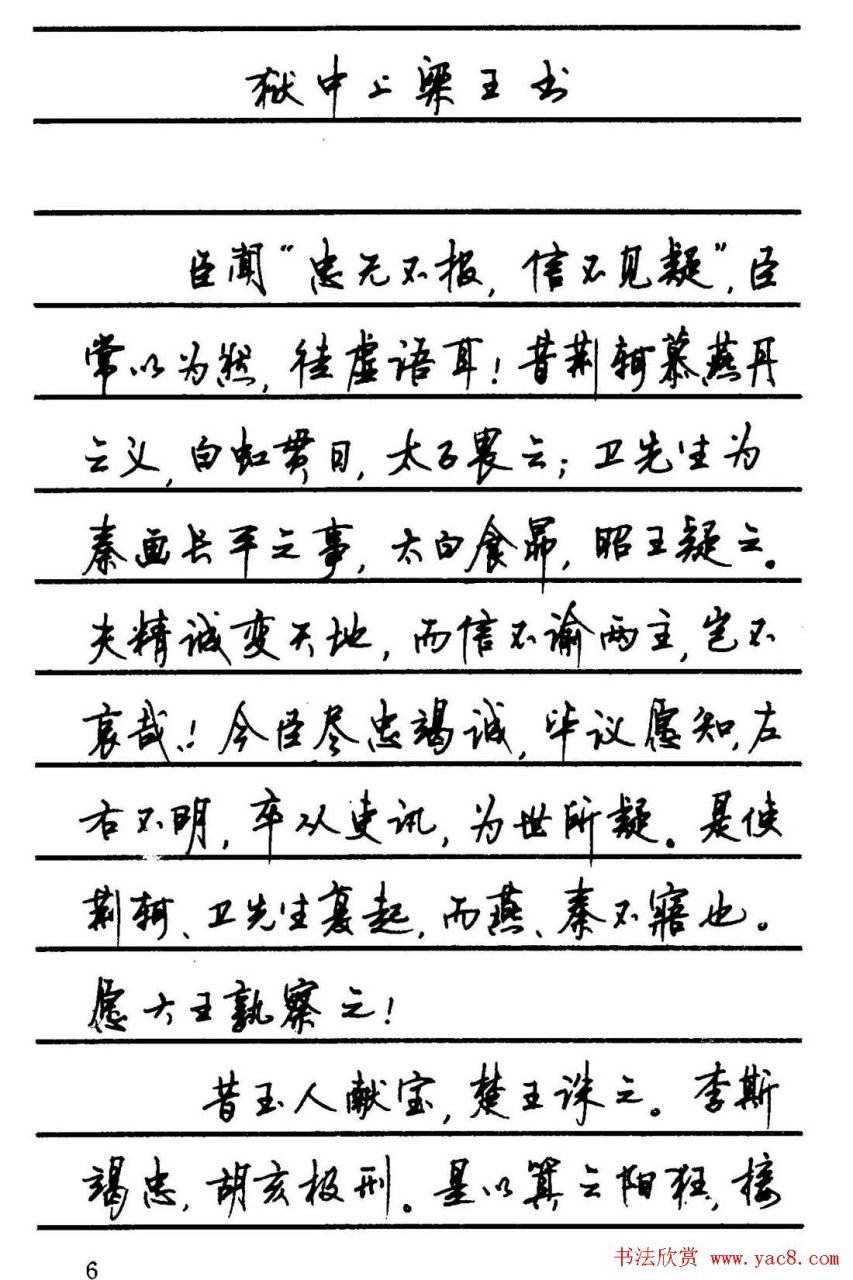 狱中上梁王书
臣闻“忠无不报，信不见疑”，臣
常以为然，徒虚语耳！昔荆轲慕燕丹
之义，白虹贯日，太子畏之；卫先生为
秦画长平之事，太白食昴，昭王疑之。
夫精诚变天地，而信不谕两主，岂不
哀哉！今臣尽忠竭诚，毕议愿知，左
右不明，卒从吏讯，为世所疑。是使
荆轲、卫先生复起，而燕、秦不寤也。
愿大王孰察之！
昔玉人献宝，楚王诛之。李斯
竭忠，胡亥极刑。是以箕子阳狂，接
6
书法欣赏 www.yac8.com